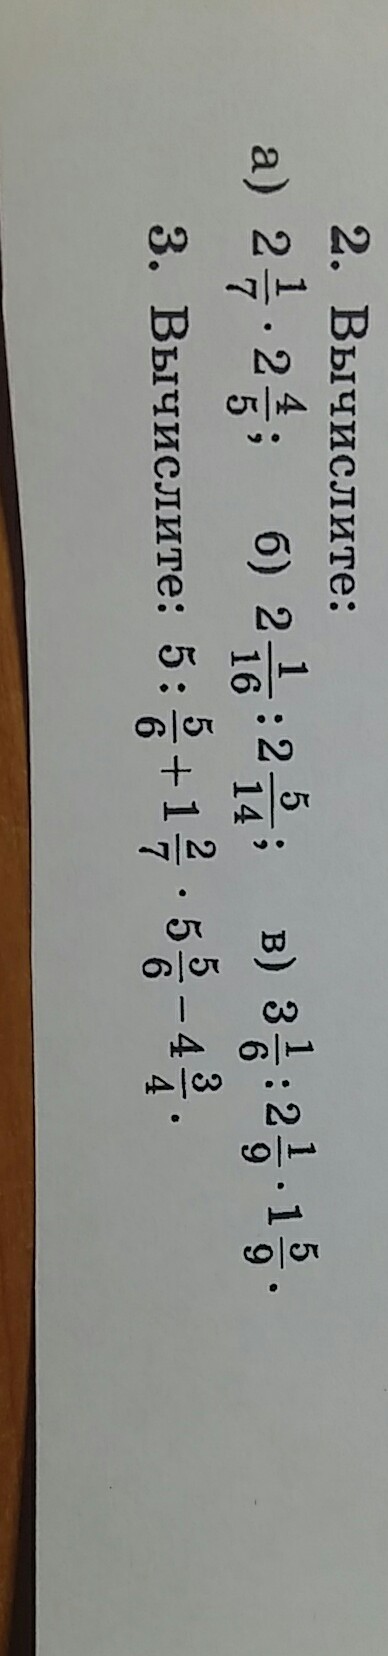 2. Вычислите:
а) 2 1/7 · 2 4/5; б) 2 1/16 : 2 5/14; в) 3 1/6 : 2 1/9 · 1 5/9.
3. Вычислите: 5 : 5/6 + 1 2/7 · 5 5/6 − 4 3/4.